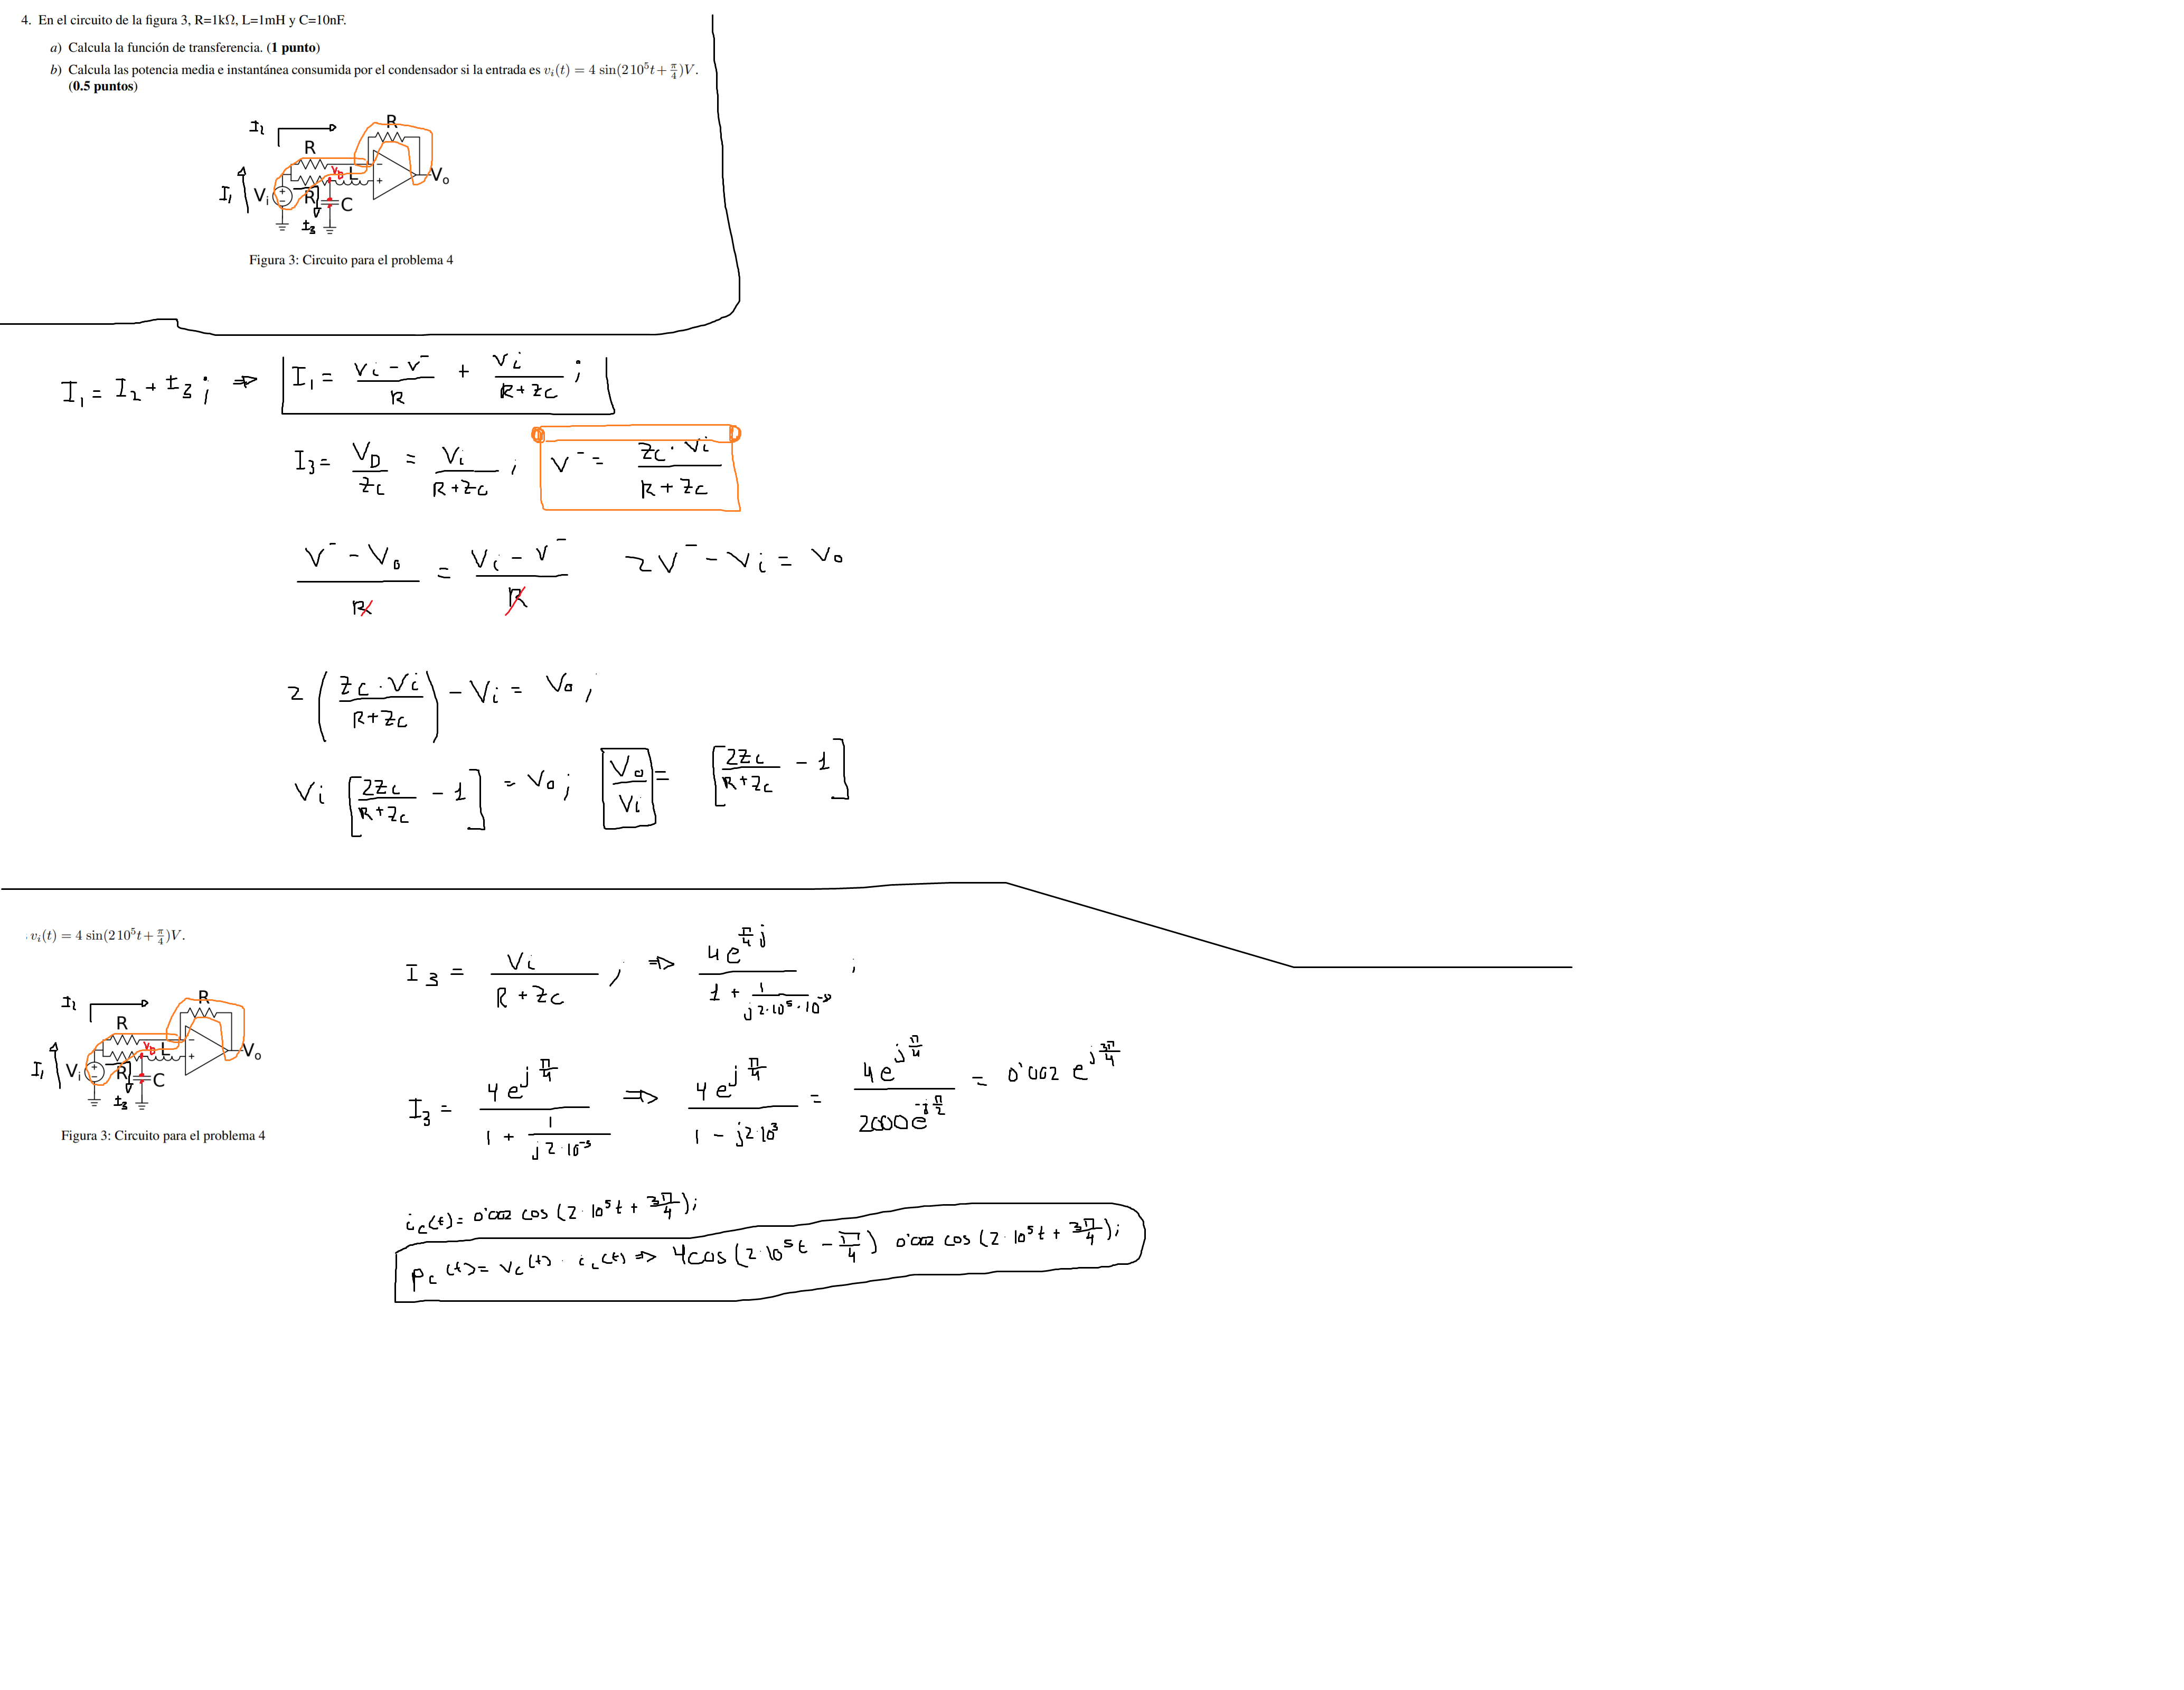 4. En el circuito de la figura 3, R=1kΩ, L=1mH y C=10nF.
a) Calcula la función de transferencia. (1 punto)
b) Calcula las potencia media e instantánea consumida por el condensador si la entrada es v_i(t) = 4 sin(2 10^5 t + π/4)V.
(0.5 puntos)
I2
R
R
I1
Vi
+
−
R
VD
L
−
+
Vo
C
I3
Figura 3: Circuito para el problema 4
I1 = I2 + I3 ; ⇒ I1 = (Vi − V^-)/R + Vi/(R + Zc) ;
I3 = VD/Zc = Vi/(R + Zc) ; V^- = (Zc · Vi)/(R + Zc)
(V^- − Vo)/R = (Vi − V^-)/R 2V^- − Vi = Vo
2 ((Zc · Vi)/(R + Zc)) − Vi = Vo ;
Vi [2Zc/(R + Zc) − 1] = Vo ; Vo/Vi = [2Zc/(R + Zc) − 1]
. v_i(t) = 4 sin(2 10^5 t + π/4)V.
I3 = Vi/(R + Zc) ; ⇒ 4e^(π/4 j)/(1 + 1/(j 2·10^5 · 10^-8)) ;
I2
R
R
I1
Vi
+
−
R
VD
L
−
+
Vo
C
I3
Figura 3: Circuito para el problema 4
I3 = 4e^(j π/4)/(1 + 1/(j 2·10^-3)) ⇒ 4e^(j π/4)/(1 − j2·10^3) = 4e^(j π/4)/(2000e^(-j π/2)) = 0'002 e^(j 3π/4)
ic(t) = 0'002 cos (2·10^5 t + 3π/4) ;
Pc (t) = Vc(t) · ic(t) ⇒ 4cos (2·10^5 t − π/4) 0'002 cos (2·10^5 t + 3π/4) ;